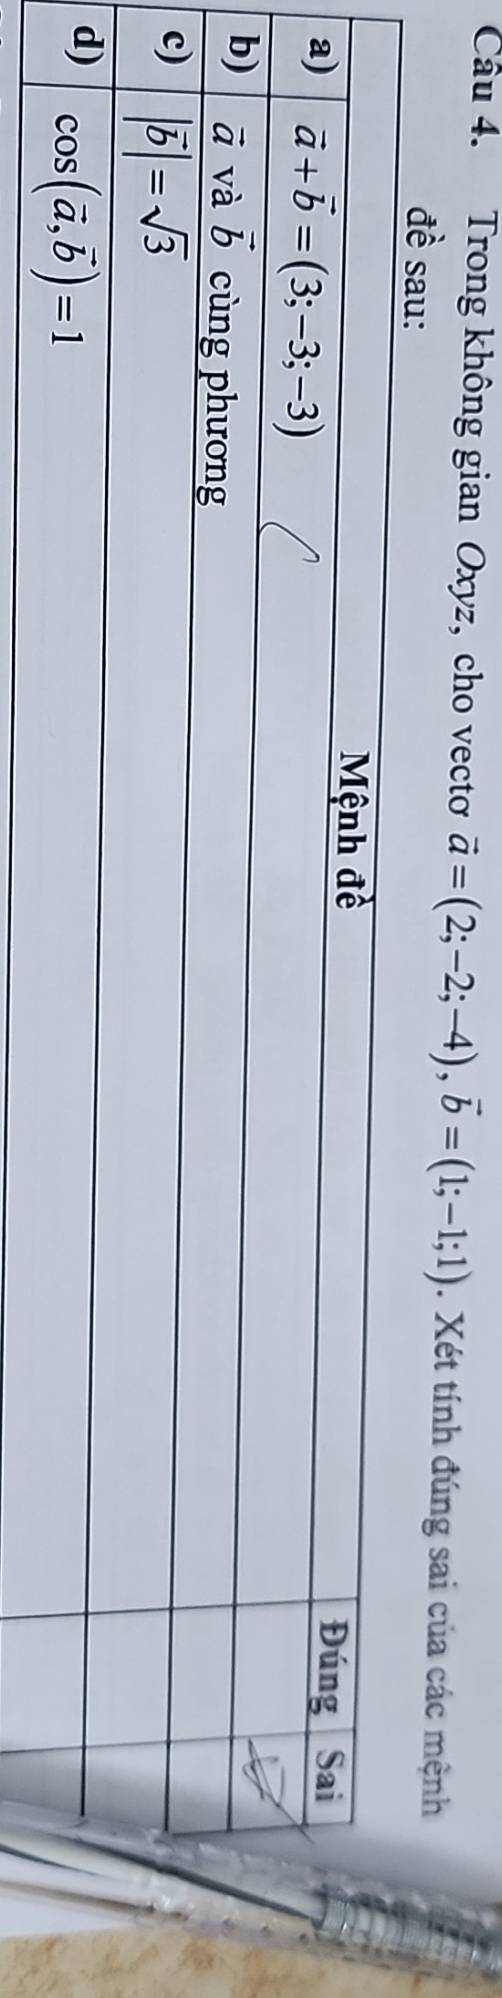 Câu 4. Trong không gian Oxyz, cho vectơ $\vec{a}=(2;-2;-4)$, $\vec{b}=(1;-1;1)$. Xét tính đúng sai của các mệnh
đề sau:
Mệnh đề Đúng Sai
a) $\vec{a}+\vec{b}=(3;-3;-3)$
b) $\vec{a}$ và $\vec{b}$ cùng phương
c) $|\vec{b}|=\sqrt{3}$
d) $\cos(\vec{a},\vec{b})=1$